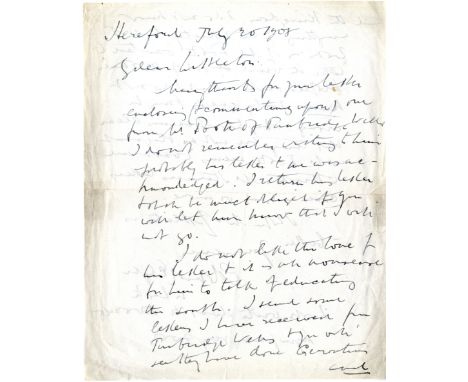 Hereford July 20 1908
My dear Littleton
Many thanks for your letter
enclosing (& commenting upon) one
from Mr of Tunbridge Wells
I do not remember writing to him
probably his letter to me was ac-
knowledged: I return his letter
& shall be much obliged if you
will let him know that I will
not go.
I do not like the tone of
his letter & it is all nonsense
for him to talk of educating
the south. I send some
letters I have received from
Tunbridge Wells & you will
see they have done Gerontius
and